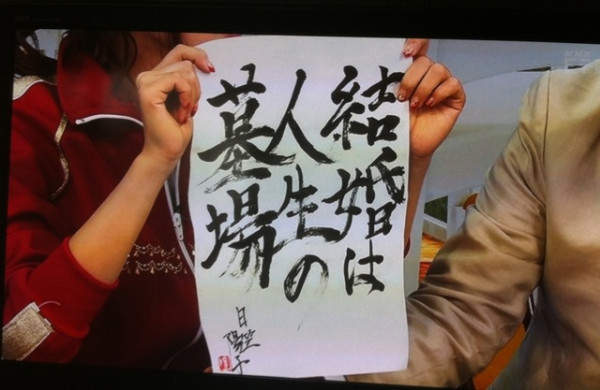 結婚は
人生の
墓場
日笠陽子